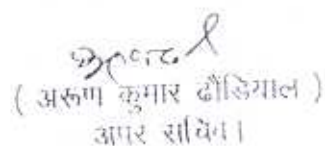 ( अरूण कुमार ढौंडियाल )
अपर सचिव।